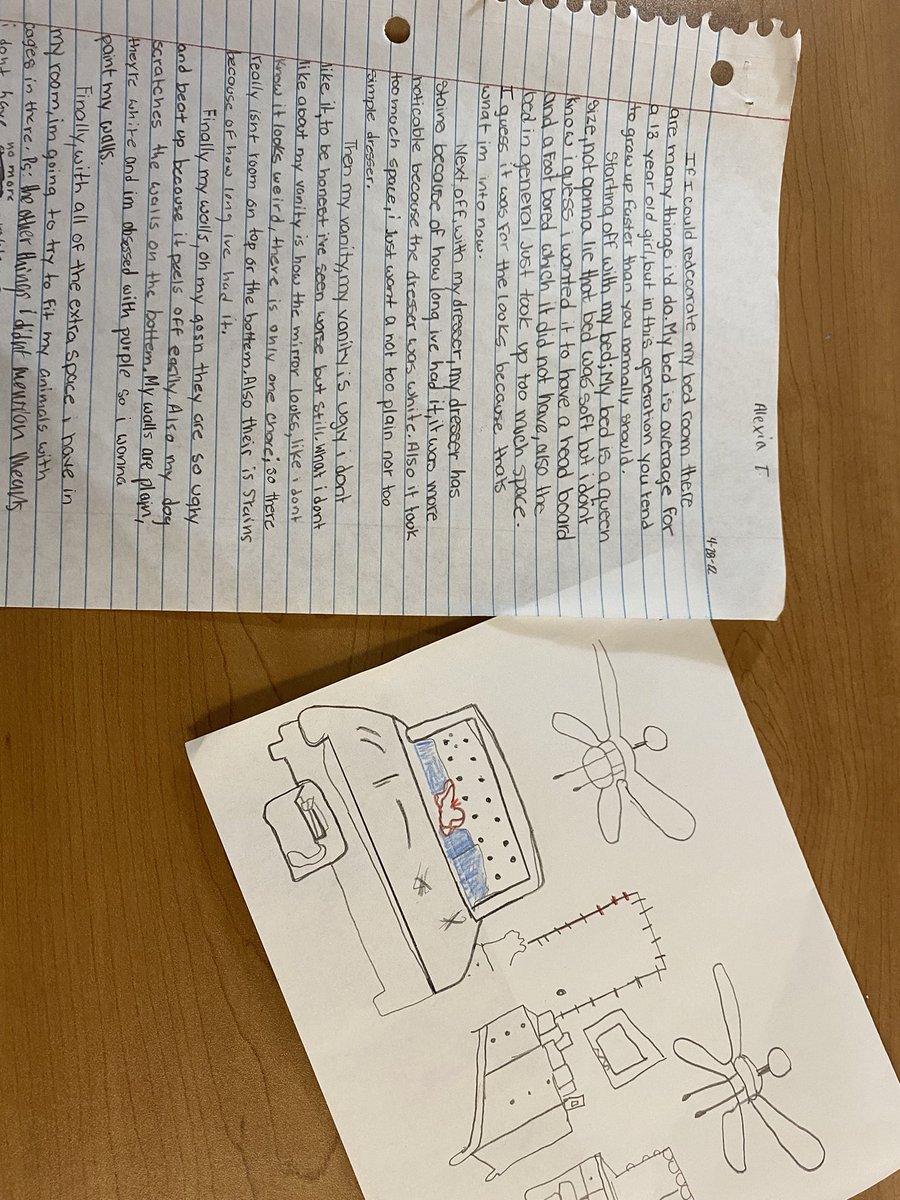 Alexia T.
4-28-22
If I could redecorate my bed room there
are many things i'd do. My bed is average for
a 13 year old girl, but in this generation you tend
to grow up faster than you normally should.
Starting off with my bed; My bed is a queen
size, not gonna lie that bed was soft but i don't
know i guess i wanted it to have a head board
and a foot bored which it did not have, also the
bed in general just took up too much space.
I guess it was for the looks because thats
what im into now.
Next off, with my dresser, my dresser has
stains because of how long ive had it, it was more
noticable because the dresser was white. Also it took
too much space, i just want a not too plain nor too
simple dresser.
Then my vanity, my vanity is ugly i dont
like it, to be honest i've seen worse but still. What i dont
like about my vanity is how the mirror looks, like i dont
know it looks weird, there is only one chore; so there
really isnt room on top or the bottem. Also their is stains
because of how long ive had it.
Finally my walls, oh my gosh they are so ugly
and beat up because it peels off easily. Also my dog
scratches the walls on the bottem. My walls are plain,
they're white and im obsessed with purple so i wanna
paint my walls.
Finally, with all of the extra space i have in
my room, im going to try to fit my animals with
cages in there. Ps: the other things i didnt mention means
no more
i dont have